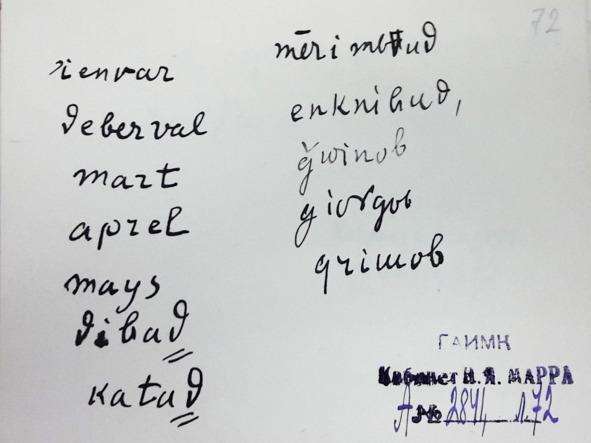 ienvar
ƌeberval
mart
aprel
mays
ƌibaƌ
kaƭaƌ
72
enkniƅuƌ,
ğwinob
giorgob
qrimob
ГАИМК
Кабинет Н. Я. МАРРА
А № 2844, л. 72